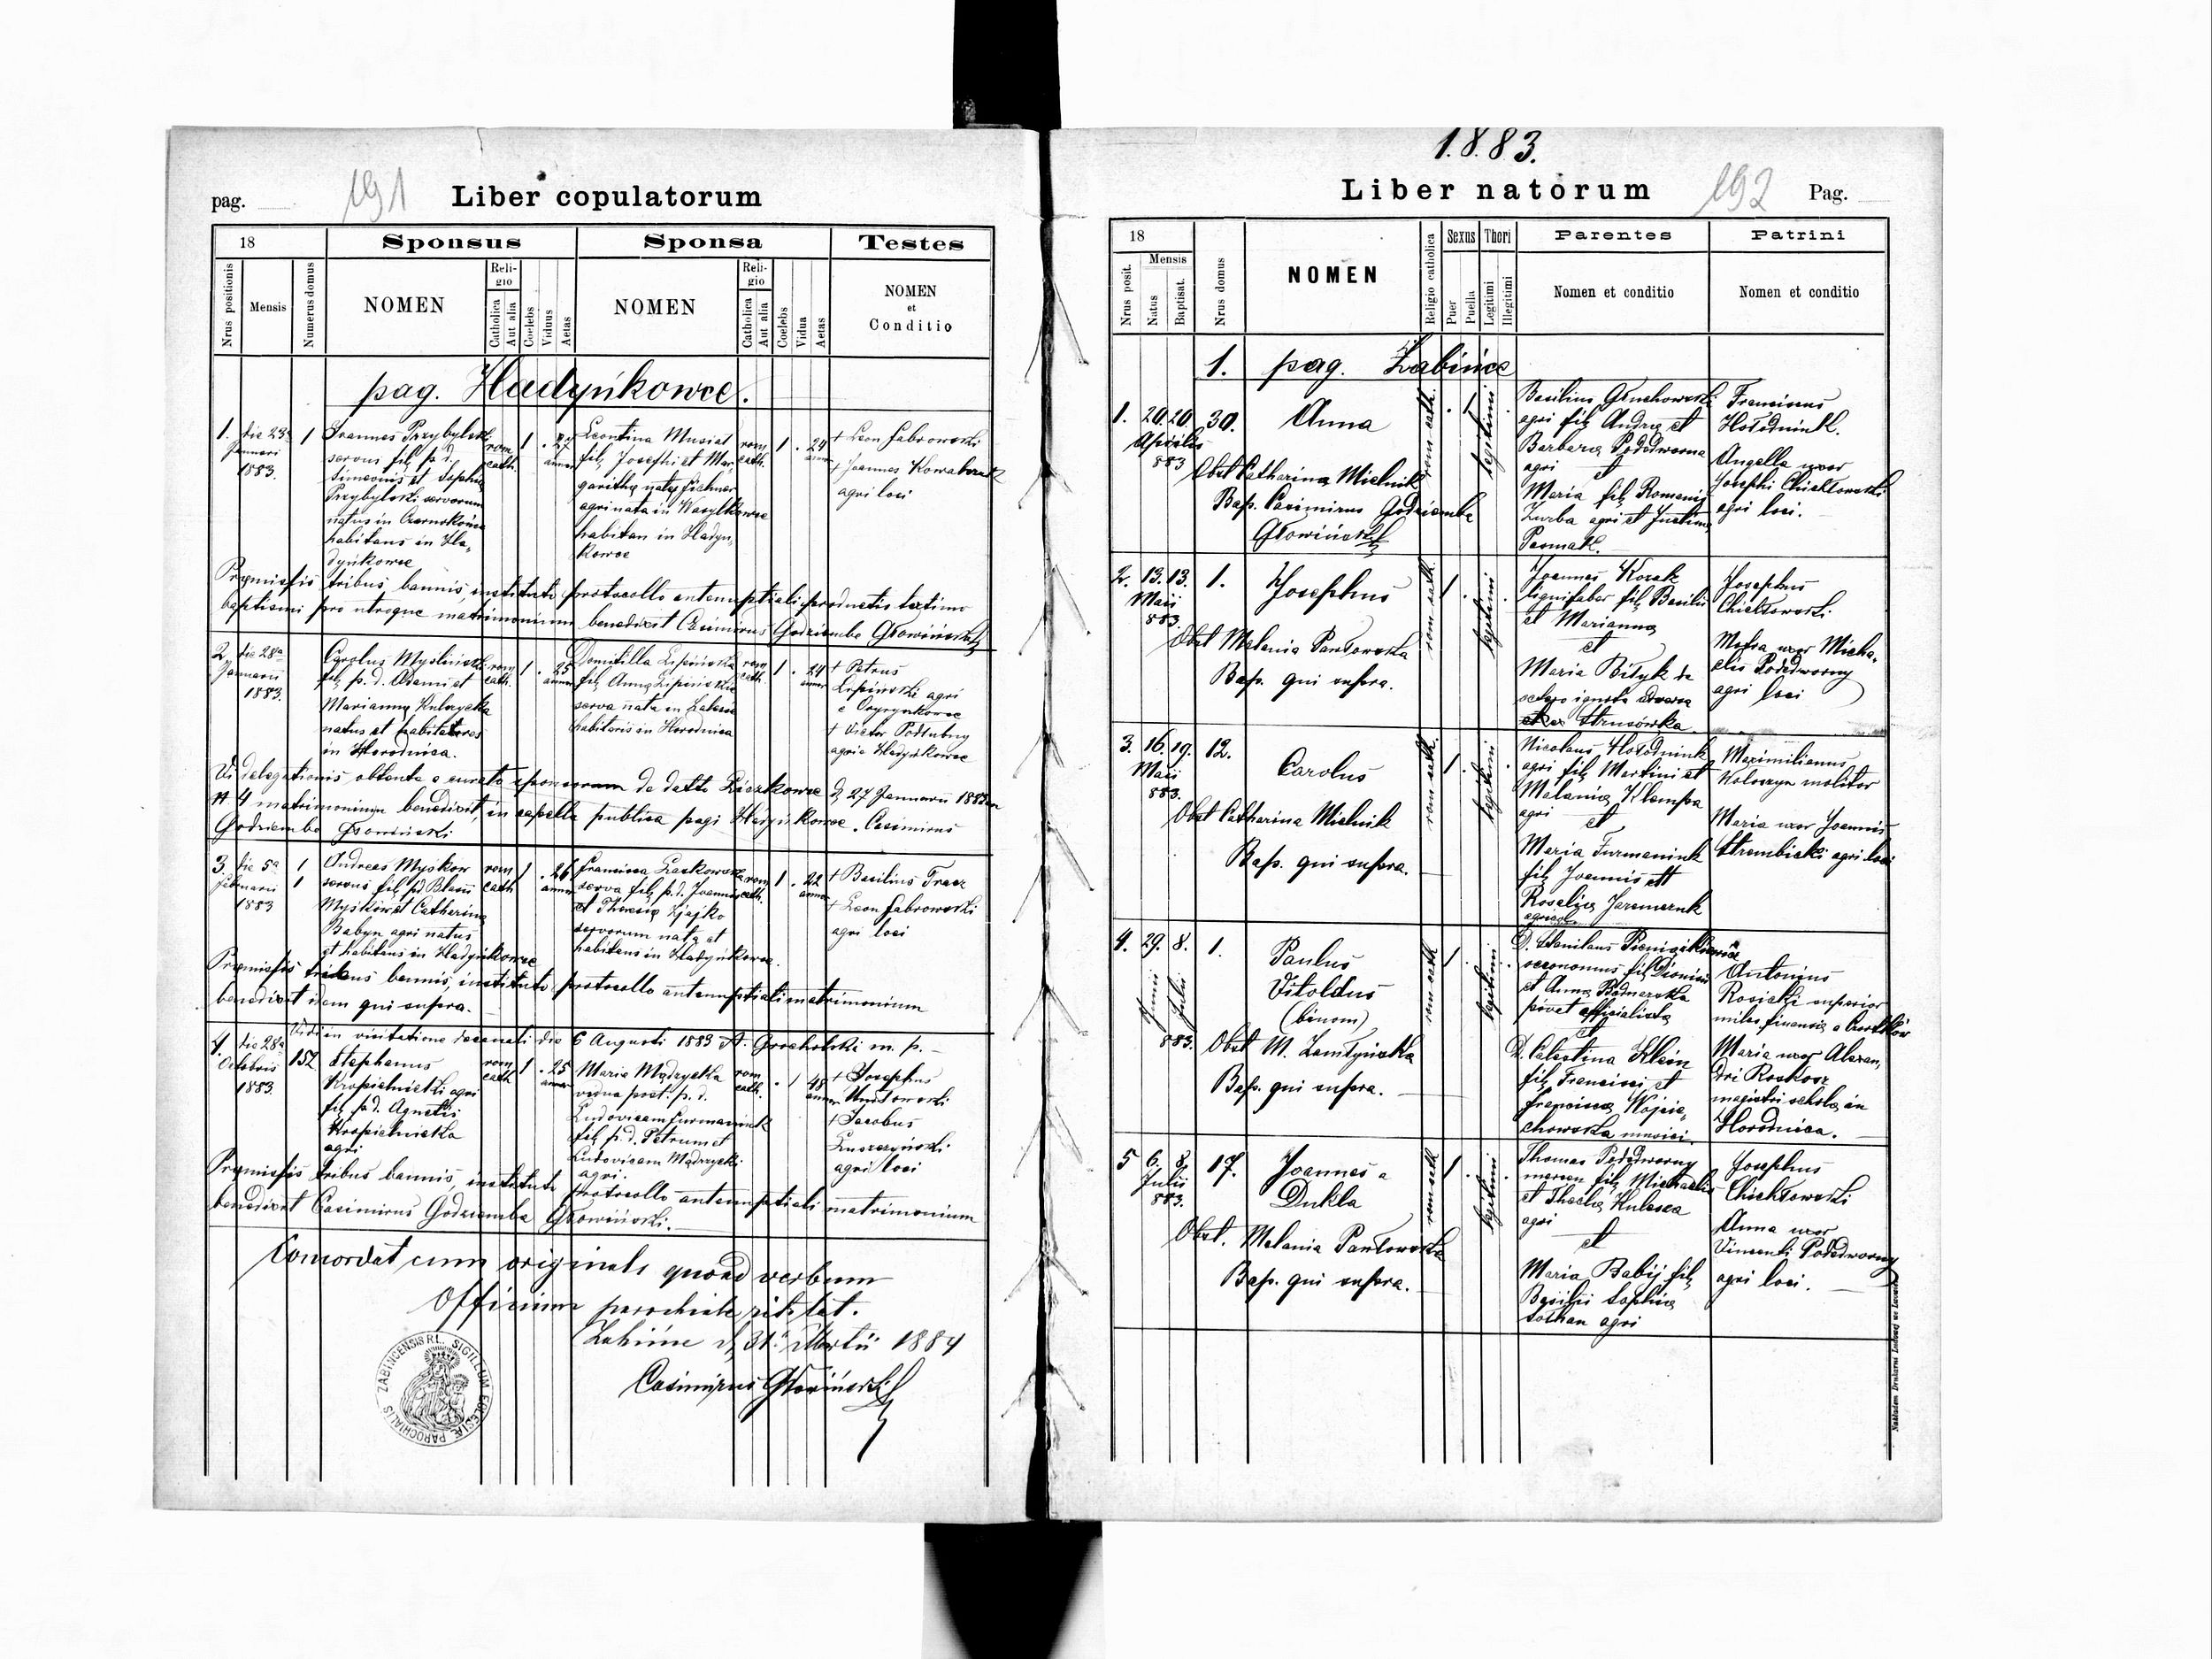 pag. 191 Liber copulatorum
18 Sponsus Sponsa Testes
Nrus positionis Mensis Numerus domus NOMEN Religio Catholica Aut alia Coelebs Viduus Aetas NOMEN Religio Catholica Aut alia Coelebs Vidua Aetas NOMEN et Conditio
pag. Hadyńkowce.
1. die 23 Januari 1883. 1
Joannes Przybylski
servus fil. p. d.
Simeonis et Sophia
Przybylski servorum
natus in
habitans in Ha-
dyńkowce
rom. cath. 1 . 27 annor
Leontina Musiał
fil. Josephi et Mar-
garitha
agri nata in Wasylkowce
habitan in Hadyn-
kowce
rom. cath. 1 . 24 annor
+ Leon Gabrowski
+ Joannes
agri loci
Premissis tribus bannis, instituto protocollo antenuptiali productis
baptismi pro utroque matrimonium benedixit Casimirus Godziemba Głowiński
2. die 28a Januarii 1883.
Carolus
fil. p. d. Adami et
Marianna Kulczycka
natus et habitans
in Horodnica.
rom. cath. 1 . 25 annor
Domitilla Lipińska
fil. Anna Lipińska
serva nata in
habitans in Horodnica
rom. cath. 1 . 24 annor
+ Petrus
Lipiński agri
e
+ Victor Podłubny
agri e Hadyńkowce
Vi delegationis obtenta a curato sponsorum de dato Liczkowce d. 27 Januarii
N 4 matrimonium benedixit, in capella publica pagi Hadyńkowce. Casimirus
Godziemba Głowiński
3. die 5a Februarii 1883 1 1
Andreas Myśkow
servus fil. p d Blasii
Myśków et Catharina
Babyn agri natus
et habitans in Hadyńkowce
rom cath 1 . 26 annor
Francisca Laskowska
serva fil. p. d. Joannis
et Theresia Zjajko
servorum nata et
habitans in Hadyńkowce.
rom cath. 1 . 22 annor
+ Basilius
+ Leon Gabrowski
agri loci
Premissis tribus bannis, instituto protocollo antenuptiali matrimonium
benedixit idem qui supra.
Vidi in visitatione decanali die 6 Augusti 1883 A. Grocholski m. p.
4. die 28a Octobris 1883. 152
Stephanus
Kropielnicki agri
fil. p. d. Agnetis
Kropielnicka
agri
rom cath 1 . 25 annor
Maria Mądrycka
vidua post. p. d.
Ludovicam Furmaniuk
fil. p. d. Petrum et
Ludovicam Mądrzycki
agri.
rom cath. . 1 48 annor
+ Josephus
+ Jacobus
agri loci
Premissis tribus bannis, instituto protocollo antenuptiali matrimonium
benedixit Casimirus Godziemba Głowiński.
Concordat cum originali quoad verbum
Officium parochiale rit. lat.
d. 31. Martii 1884
Casimirus Głowiński
SIGILLUM ECLESIÆ PAROCHIALIS ZABINCENSIS R.L.
1883.
Liber natorum 192 Pag.
18 Sexus Thori Parentes Patrini
Nrus posit. Mensis Natus Baptisat. Nrus domus NOMEN Religio catholica Puer Puella Legitimi Illegitimi Nomen et conditio Nomen et conditio
1. pag. Żabińce
1. 20. 20. Aprilis 883 30. Anna
rom cath. . 1 legitimi
Obst Catharina Mielnik
Bap. Casimirus Godziemba
Głowiński
Basilius Gruchowski
agri fil. Andrea et
Barbara Podedworna
agri et
Maria fil. Romani
Zurba agri et
Franciscus
Hołodniuk.
Angella uxor
Josephi Chichłowski
agri loci.
2. 13. 13. Maii 883. 1. Josephus
rom cath. 1 . legitimi
Obst Melania Pawłowska
Bap. qui supra.
Joannes Kozak
lignifaber fil. Basilii
et Marianna
et
Maria Biłyk de
Strusówka
Josephus
Chichłowski
uxor Micha-
elis Podedworny
agri loci
3. 16. 19. Maii 883. 12. Carolus
rom cath. 1 . legitimi
Obst Catharina Mielnik
Bap. qui supra.
Nicolaus Hołodniuk
agri fil. Martini et
Melania Klempa
agri et
Maria Furmaniuk
fil. Joannis et
Rosalia Jaremczuk
agricol.
Maximilianus
Woloszyn molitor
Maria uxor Joannis
Strembicki agri loci
4. 29. Junii 8. Julii 883. 1. Paulus
Vitoldus
(binom)
rom cath 1 . legitimi
Obst M.
Bap. qui supra.
D. Stanilaus
oeconomus fil. Dionisii
et Anna Bednarska
privat officialista
et
D. Celestina Klein
fil. Francisci et
Francisca Wojcie-
chowska musici.
Antonius
Rosicki superior
miles financia a Czortków
Maria uxor Alexan-
dri Roskosz
magistri schola in
Horodnica.
5 6. 8. Julii 883. 17. Joannes a
Dukla
rom cath 1 . legitimi
Obst. Melania Pawłowska
Bap. qui supra.
Thomas Podedworny
mercen fil. Michaelis
et Thecla Kulesza
agri
et
Maria Babij fil.
Basilii Sophia
agri
Josephus
Chichłowski
Anna uxor
Vincenti Podedworny
agri loci.
Nakładem Drukarni Ludowej we Lwowie